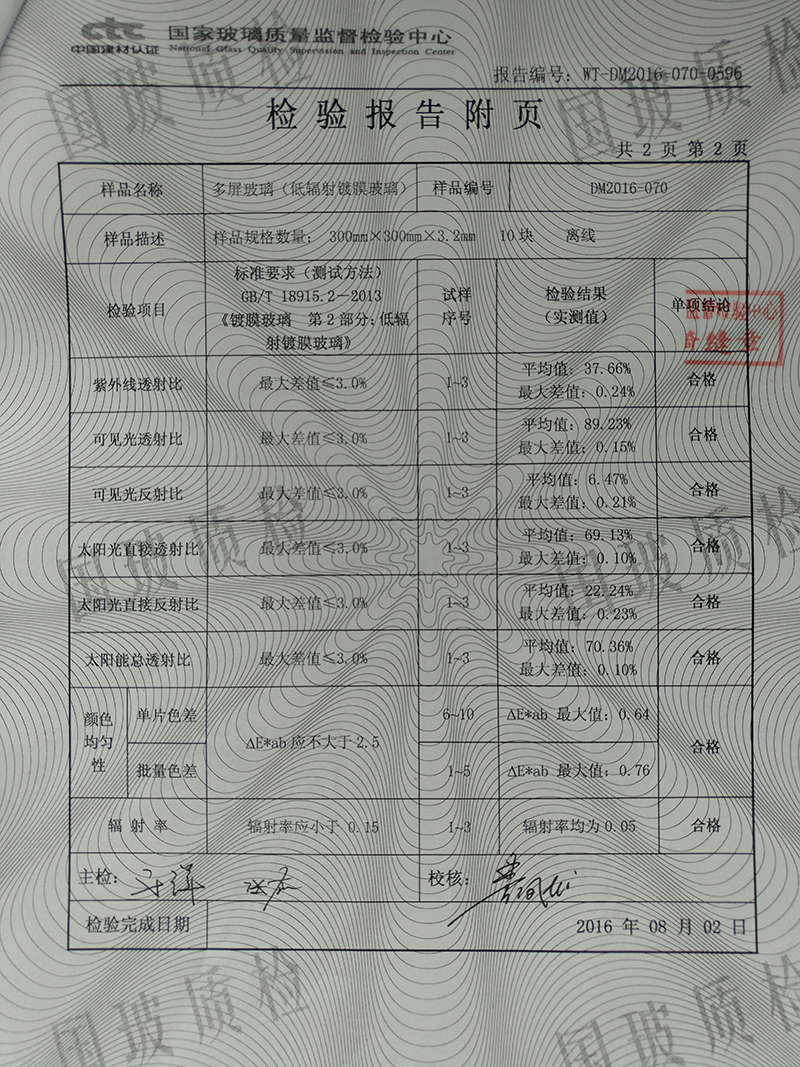 ctc 国家玻璃质量监督检验中心
中国建材认证 National Glass Quality Supervision and Inspection Center
报告编号：WT-DM2016-070-0596
检验报告附页
共 2 页 第 2 页
样品名称 多屏玻璃（低辐射镀膜玻璃） 样品编号 DM2016-070
样品描述 样品规格数量： 300mm×300mm×3.2mm 10块 离线
检验项目
标准要求（测试方法）
GB/T 18915.2－2013
《镀膜玻璃 第2部分：低辐
射镀膜玻璃》
试样
序号
检验结果
（实测值）
单项结论
紫外线透射比 最大差值≤3.0% 1~3 平均值：37.66%
最大差值：0.24% 合格
可见光透射比 最大差值≤3.0% 1~3 平均值：89.23%
最大差值：0.15% 合格
可见光反射比 最大差值≤3.0% 1~3 平均值：6.47%
最大差值：0.21% 合格
太阳光直接透射比 最大差值≤3.0% 1~3 平均值：69.13%
最大差值：0.10% 合格
太阳光直接反射比 最大差值≤3.0% 1~3 平均值：22.24%
最大差值：0.23% 合格
太阳能总透射比 最大差值≤3.0% 1~3 平均值：70.36%
最大差值：0.10% 合格
颜色
均匀
性
单片色差 6~10 ΔE*ab 最大值：0.64
ΔE*ab应不大于2.5 合格
批量色差 1~5 ΔE*ab 最大值：0.76
辐 射 率 辐射率应小于 0.15 1~3 辐射率均为0.05 合格
主检： 校核：
检验完成日期 2016 年 08 月 02 日
国玻质检
国玻质检
国玻质检
国玻质检
国玻质检
国玻质检